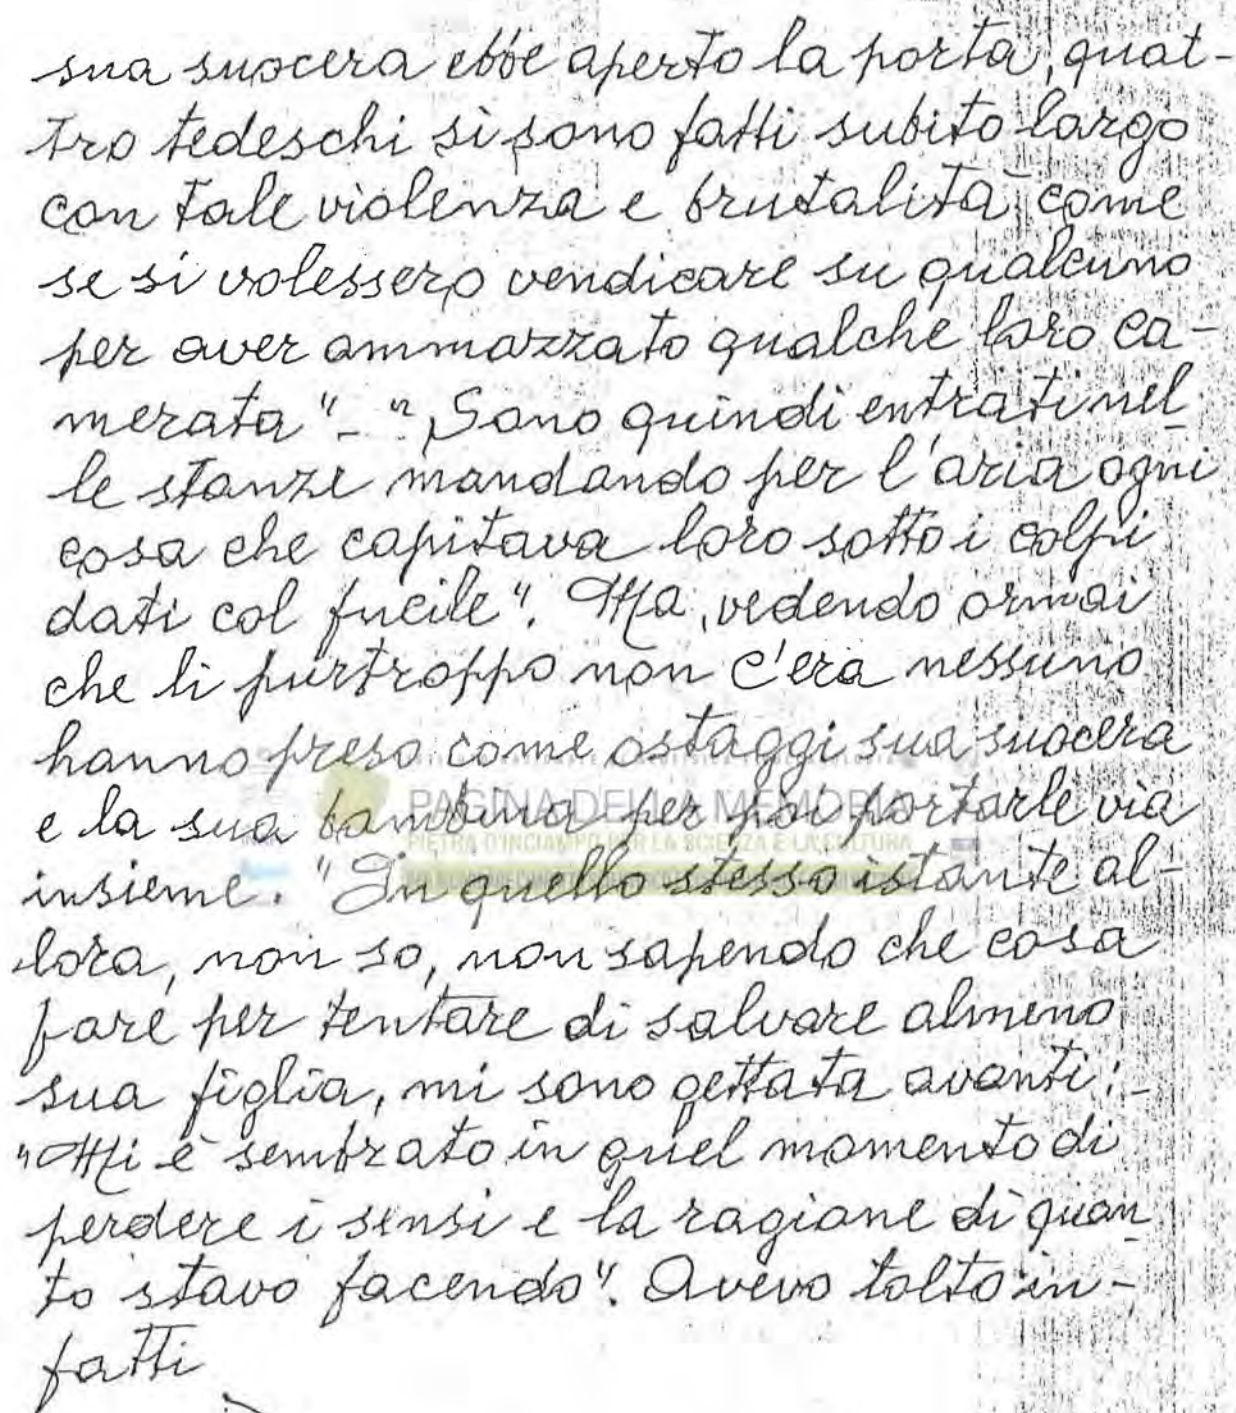 sua suocera ebbe aperto la porta, quat-
tro tedeschi si sono fatti subito largo
con tale violenza e brutalità come
se si volessero vendicare su qualcuno
per aver ammazzato qualche loro ca-
merata"- "Sono quindi entrati nel
le stanze mandando per l'aria ogni
cosa che capitava loro sotto i colpi
dati col fucile". Ma, vedendo ormai
che lì purtroppo non c'era nessuno
hanno preso come ostaggi sua suocera
e la sua bambina per poi portarle via
PAGINA DELLA MEMORIA
PIETRA D'INCIAMPO PER LA SCIENZA E LA CULTURA
insieme. "In quello stesso istante al-
lora, non so, non sapendo che cosa
fare per tentare di salvare almeno
sua figlia, mi sono gettata avanti:-
"Mi è sembrato in quel momento di
perdere i sensi e la ragione di quan
to stavo facendo". Avevo tolto in-
fatti